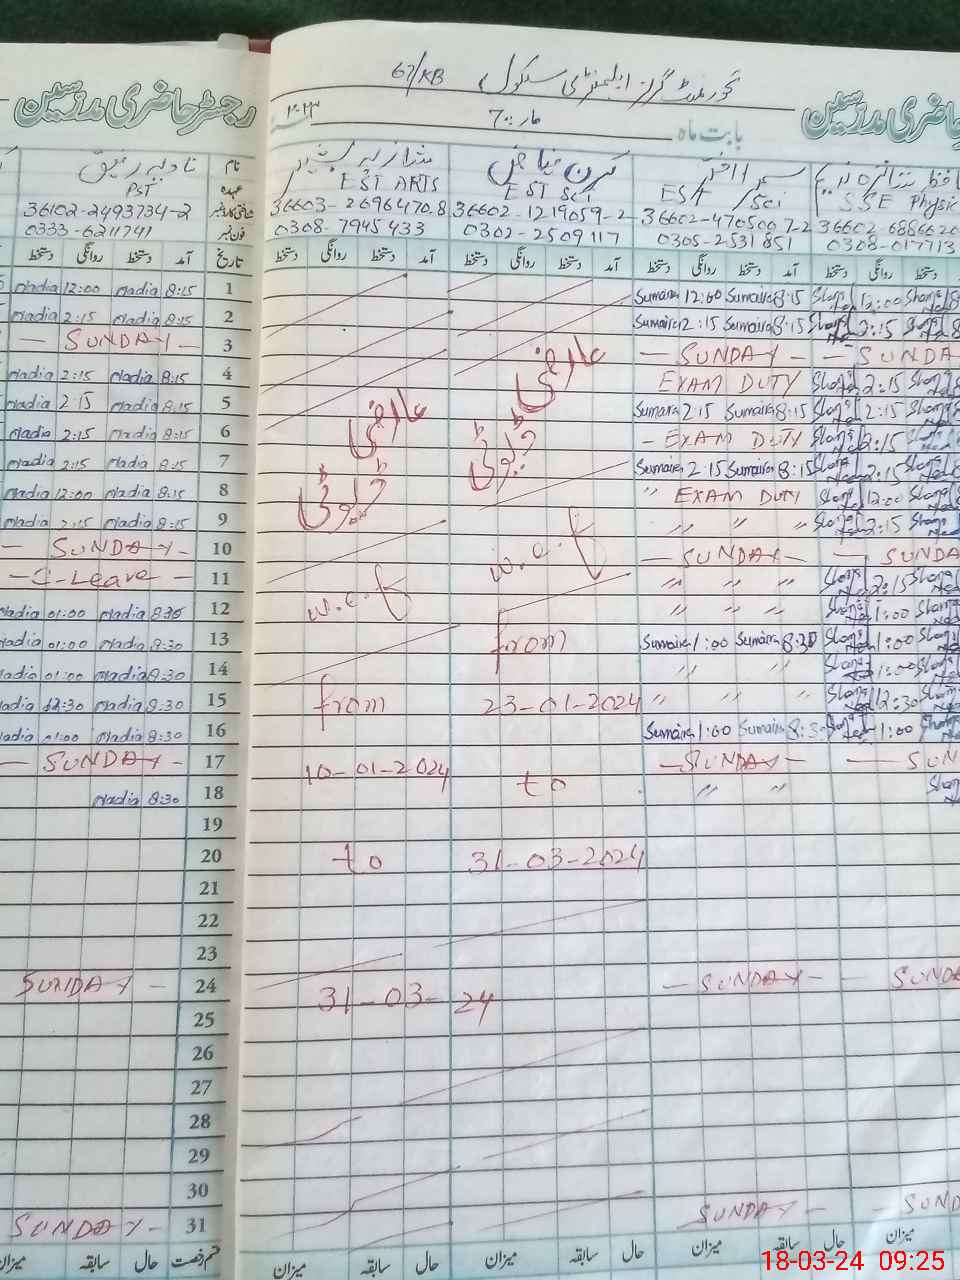 گورنمنٹ گرلز ایلیمنٹری سکول 67/KB
رجسٹر حاضری مدرسین
حاضری مدرسین
بابت ماہ مارچ
نام نادیہ رفیق شازیہ بشیر کرن فیاض
عہدہ PST EST ARTS EST Sci EST / Sci SSE Physic
36102-2493734-2 36603-2696470.8 36602-1219059-2 36602-4705007-2 36602-6886620
فون نمبر 0333-6211741 0308-7945433 0302-2509117 0305-2531851 0308-017713
دستخط روانگی دستخط آمد تاریخ دستخط روانگی دستخط آمد دستخط روانگی دستخط آمد دستخط روانگی دستخط آمد دستخط روانگی دستخط
Nadia 12:00 Nadia 8:15 1 Sumaira 12:00 Sumaira 8:15 12:00
Nadia 2:15 Nadia 8:15 2 Sumaira 2:15 Sumaira 8:15 2:15
— SUNDAY — 3 — SUNDAY — — SUNDA
Nadia 2:15 Nadia 8:15 4 عارضی EXAM DUTY 2:15
Nadia 2:15 Nadia 8:15 5 عارضی Sumaira 2:15 Sumaira 8:15 2:15
Nadia 2:15 Nadia 8:15 6 ڈیوٹی - EXAM DUTY 2:15
Nadia 2:15 Nadia 8:15 7 Sumaira 2:15 Sumaira 8:15 2:15
Nadia 12:00 Nadia 8:15 8 ڈیوٹی " EXAM DUTY 12:00
Nadia 2:15 Nadia 8:15 9 " " " 2:15
— SUNDAY — 10 w.e.f — SUNDAY — — SUNDA
— C-Leave — 11 " " 2:15
Nadia 01:00 Nadia 8:30 12 w.e.f " " 1:00
Nadia 01:00 Nadia 8:30 13 from Sumaira 1:00 Sumaira 8:30 1:00
Nadia 01:00 Nadia 8:30 14 " " 1:00
Nadia 12:30 Nadia 8:30 15 from 23-01-2024 " " " 12:30
Nadia 01:00 Nadia 8:30 16 Sumaira 1:00 Sumaira 8:30 1:00
— SUNDAY — 17 10-01-2024 — SUNDAY — — SUN
Nadia 8:30 18 to " "
19
20 to 31-03-2024
21
22
23
SUNDAY - 24 — SUNDAY — — SUNDA
25 31-03-24
26
27
28
29
30
SUNDAY - 31 SUNDAY - - SUND
میزان سابقہ حال قسم رخصت میزان سابقہ حال میزان سابقہ حال میزان سابقہ حال میزان
18-03-24 09:25